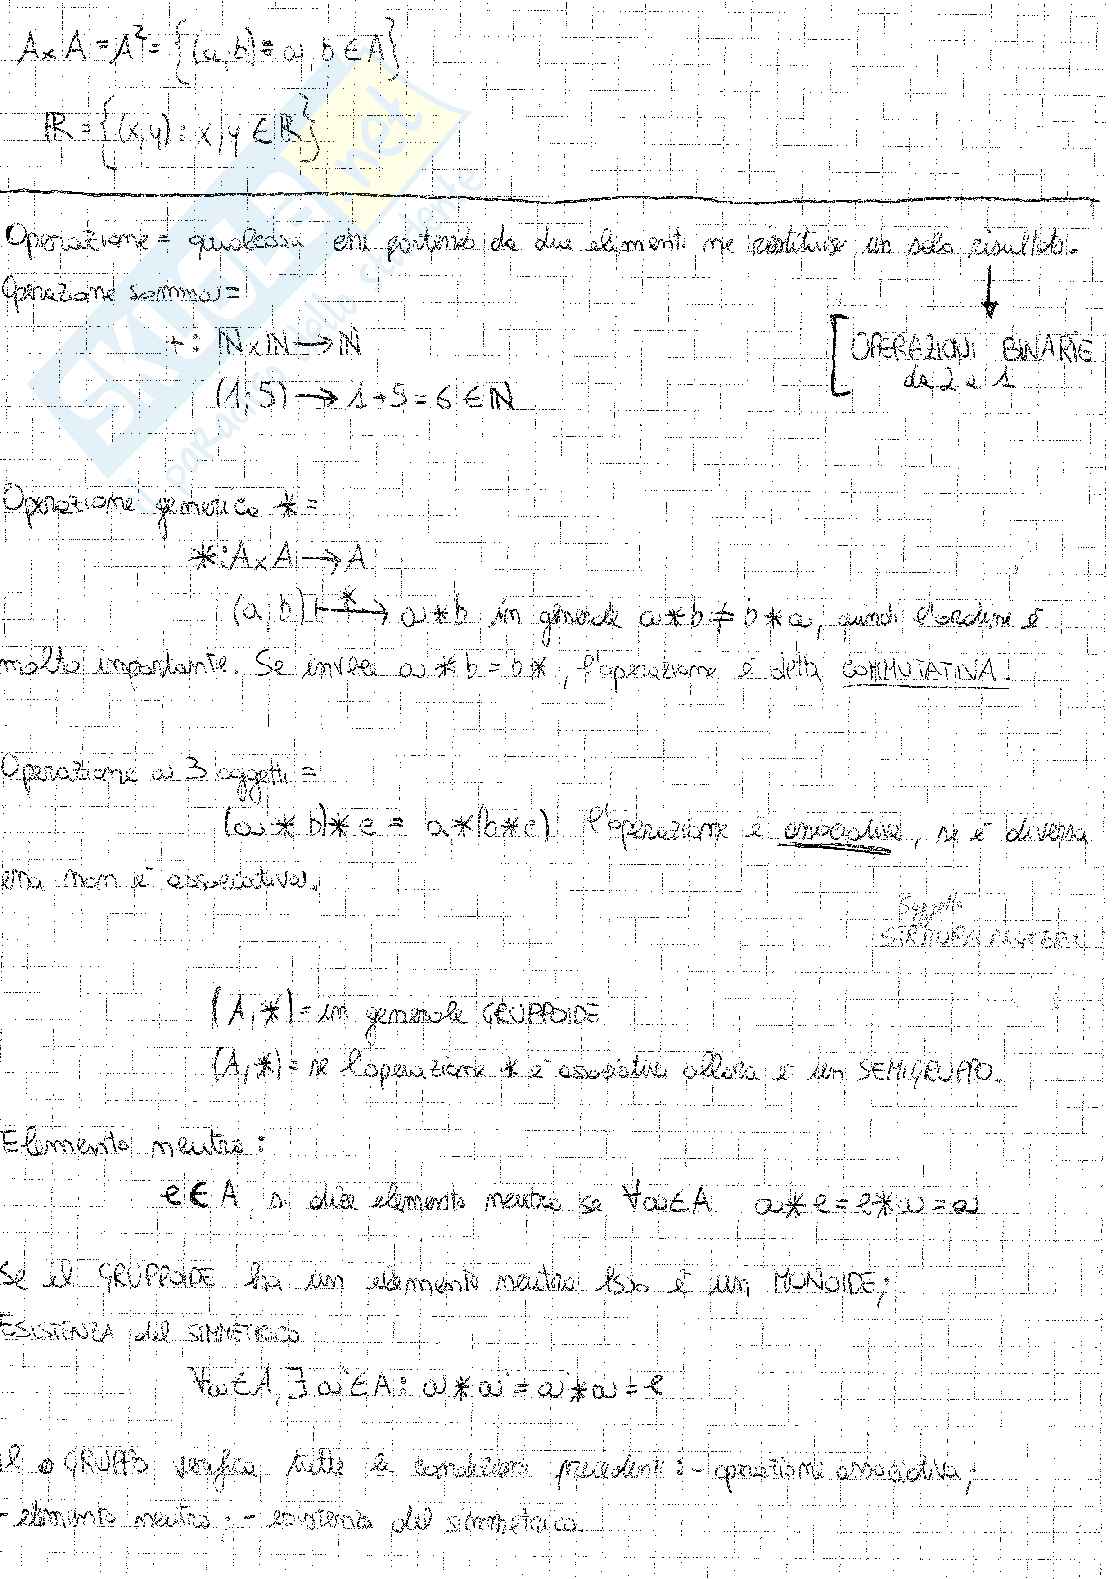 A x A = A² = {(a,b) = a, b ∈ A}
ℝ = {(x,y) : x,y ∈ ℝ}
Operazione = qualcosa che partendo da due elementi ne restituisce un solo risultato.
Operazione somma =
+ : ℕ x ℕ → ℕ
(1;5) → 1+5 = 6 ∈ ℕ
[OPERAZIONI BINARIE
da 2 a 1
Operazione generica * =
* : A x A → A
(a,b) ↦* a*b in generale a*b ≠ b*a, quindi l'ordine è
molto importante. Se invece a*b = b*, l'operazione è detta COMMUTATIVA.
Operazione a 3 oggetti =
(a*b)*c = a*(b*c) l'operazione è associativa, se è diversa
non è associativa.
Oggetto
(A,*) = in generale GRUPPOIDE
(A,*) = se l'operazione * è associativa allora è un SEMIGRUPPO.
Elemento neutro :
e ∈ A si dice elemento neutro se ∀a∈A a*e = e*a = a
Se il GRUPPOIDE ha un elemento neutro è un MONOIDE;
ESISTENZA del SIMMETRICO
∀a∈A, ∃ a'∈A : a*a' = a'*a = e
il GRUPPO verifica tutte le condizioni precedenti : - operazione associativa;
- elemento neutro; - esistenza del simmetrico.
SKUOLA.net